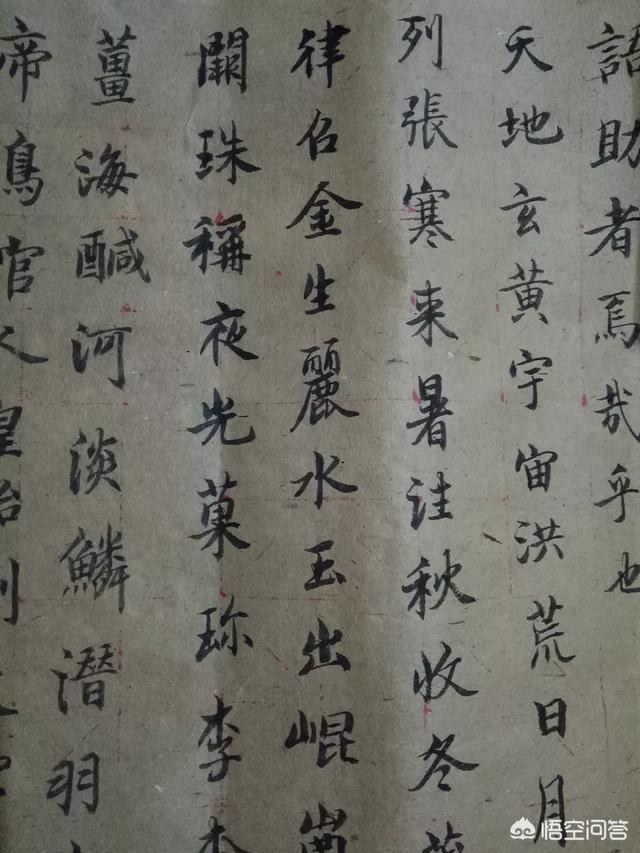 語助者焉哉乎也
天地玄黄宇宙洪荒日月
列張寒来暑往秋收冬
律召金生麗水玉出崐
闕珠稱夜光菓珍李
薑海醎河淡鱗潛羽
帝鳥官人皇始制
悟空问答